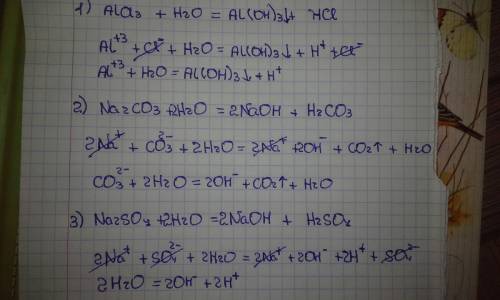 1) AlCl3 + H2O = Al(OH)3↓ + HCl
Al+3 + Cl- + H2O = Al(OH)3↓ + H+ + Cl-
Al+3 + H2O = Al(OH)3↓ + H+
2) Na2CO3 + 2H2O = 2NaOH + H2CO3
2Na+ + CO3 2- + 2H2O = 2Na+ + 2OH- + CO2↑ + H2O
CO3 2- + 2H2O = 2OH- + CO2↑ + H2O
3) Na2SO4 + 2H2O = 2NaOH + H2SO4
2Na+ + SO4 2- + 2H2O = 2Na+ + 2OH- + 2H+ + SO4 2-
2H2O = 2OH- + 2H+